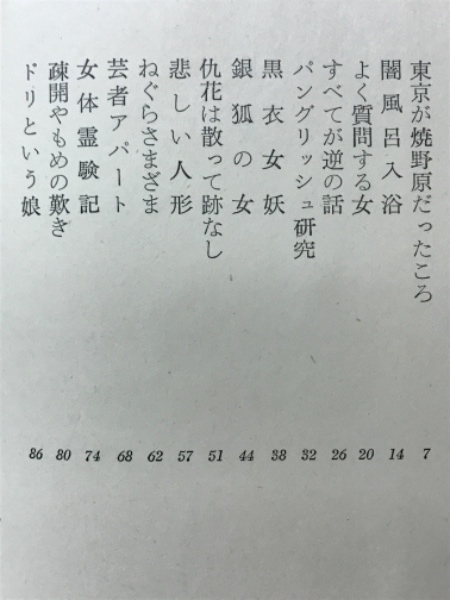 東京が焼野原だったころ 7
闇風呂入浴 14
よく質問する女 20
すべてが逆の話 26
パングリッシュ研究 32
黒衣女妖 38
銀狐の女 44
仇花は散って跡なし 51
悲しい人形 57
ねぐらさまざま 62
芸者アパート 68
女体霊験記 74
疎開やもめの歎き 80
ドリという娘 86